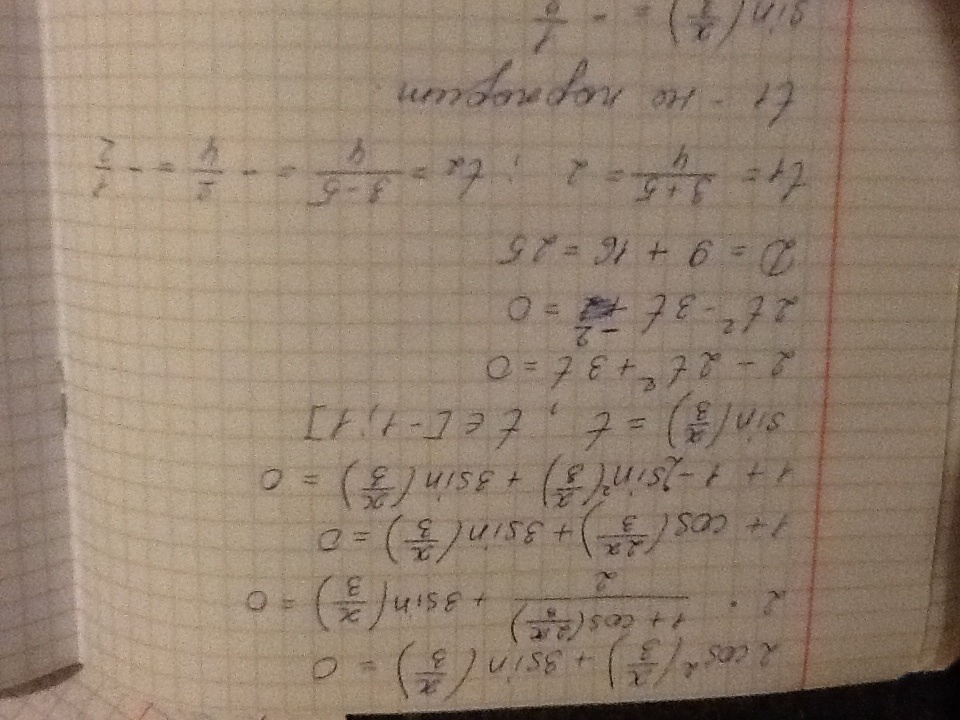 2cos²(x/3) + 3sin(x/3) = 0
2 · (1 + cos(2x/3))/2 + 3sin(x/3) = 0
1 + cos(2x/3) + 3sin(x/3) = 0
1 + 1 - 2sin²(x/3) + 3sin(x/3) = 0
sin(x/3) = t, t ∈ [-1; 1]
2 - 2t² + 3t = 0
2t² - 3t - 2 = 0
D = 9 + 16 = 25
t1 = (3+5)/4 = 2 ; t2 = (3-5)/4 = -2/4 = -1/2
t1 - не подходит
sin(x/3) = -1/